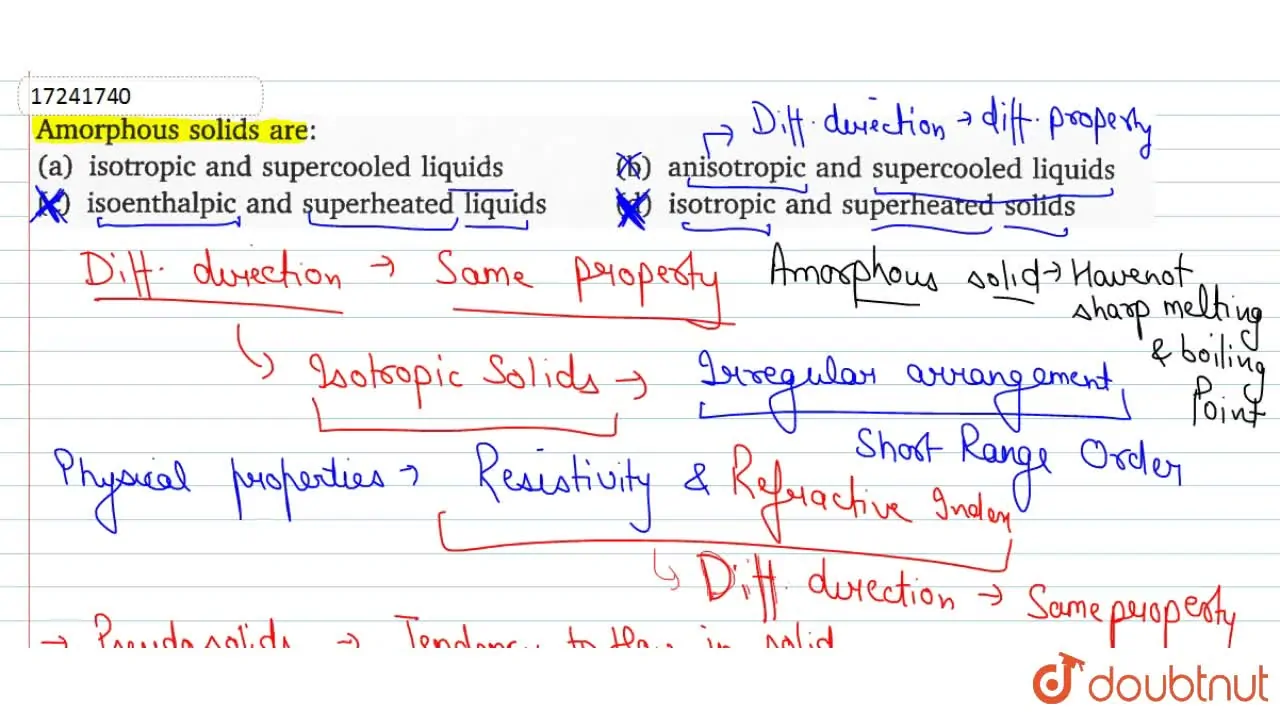 17241740
Amorphous solids are:
(a) isotropic and supercooled liquids
(b) anisotropic and supercooled liquids
(c) isoenthalpic and superheated liquids
(d) isotropic and superheated solids
Diff. direction → diff. property
Diff. direction → Same property
Amorphous solid → Have not
sharp melting
& boiling
Point
Isotropic Solids → Irregular arrangement
Short Range Order
Physical properties → Resistivity & Refractive Index
Diff. direction → Same property
→ Pseudo solids → Tendency to flow in solid
doubtnut